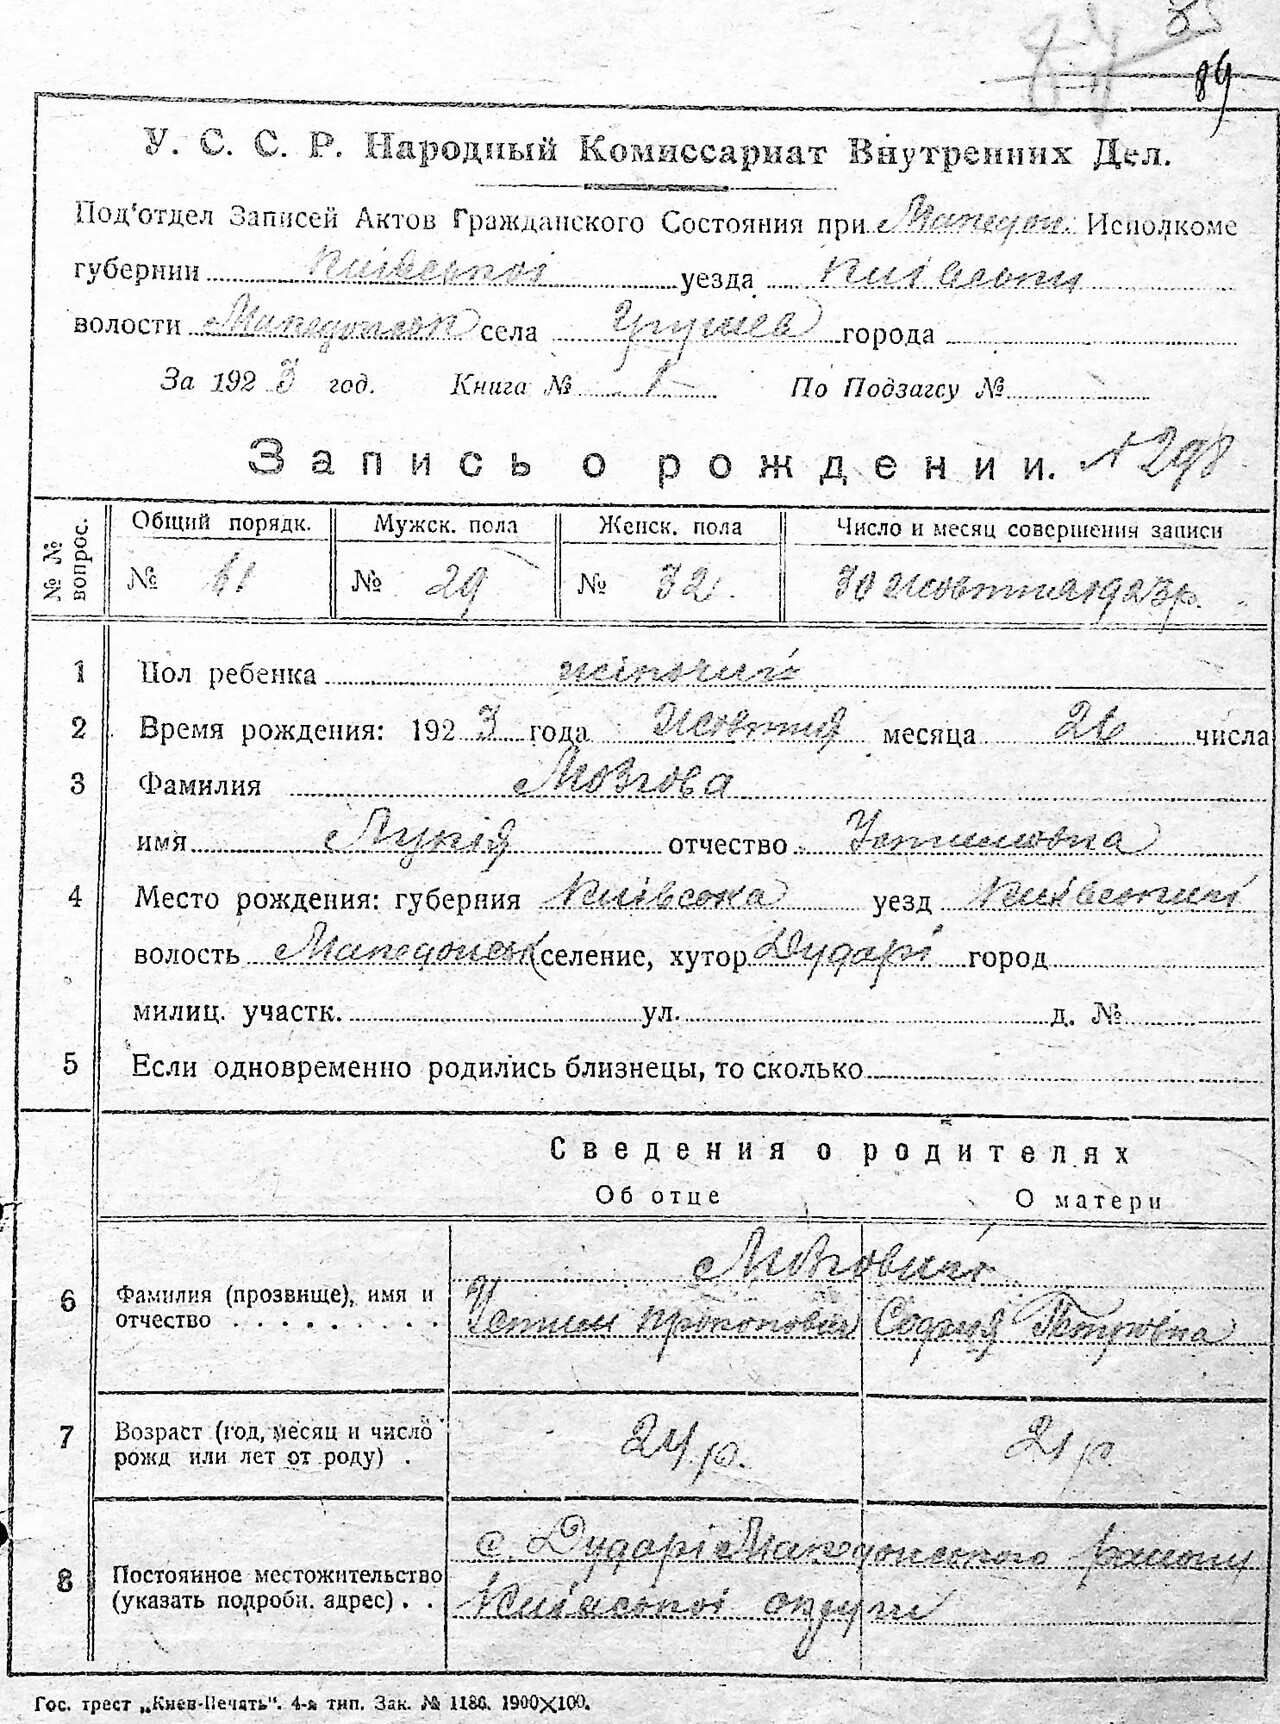 89
У. С. С. Р. Народный Комиссариат Внутренних Дел.
Под'отдел Записей Актов Гражданского Состояния при Македон. Исполкоме
губернии Київської уезда Київськи
волости Македонськ села города
За 1923 год. Книга № 1 По Подзагсу №
Запись о рождении. № 298
№ № вопрос. Общий порядк. Мужск. пола Женск. пола Число и месяц совершения записи
№ 61 № 29 № 32. 30 жовтня 1923 р.
1 Пол ребенка жіночий
2 Время рождения: 1923 года жовтня месяца 26 числа
3 Фамилия Мозгова
имя Лукія отчество Устимовна
4 Место рождения: губерния Київська уезд Київський
волость Македонськ селение, хутор Дударі город
милиц. участк. ул. д. №
5 Если одновременно родились близнецы, то сколько
Сведения о родителях
Об отце О матери
Мозговий
6 Фамилия (прозвище), имя и отчество Устим Прокопович Софія Петровна
7 Возраст (год, месяц и число рожд или лет от роду) . 24 р. 21 р.
с. Дударі Македонського району
8 Постоянное местожительство (указать подробн. адрес) . . Київської округи
Гос. трест „Киев-Печать". 4-я тип. Зак. № 1186. 1900X100.